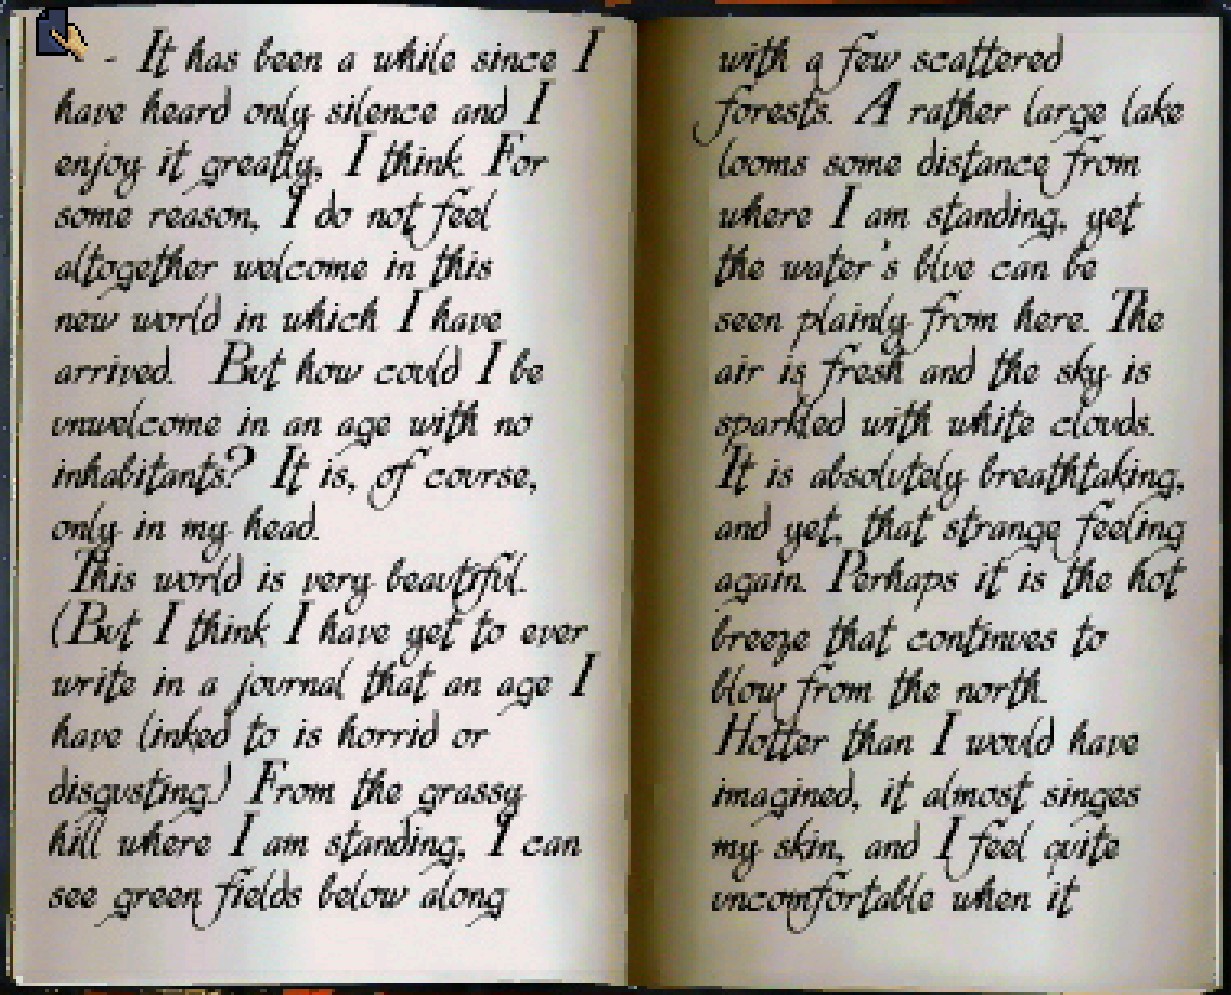 - It has been a while since I
have heard only silence and I
enjoy it greatly, I think. For
some reason, I do not feel
altogether welcome in this
new world in which I have
arrived. But how could I be
unwelcome in an age with no
inhabitants? It is, of course,
only in my head.
This world is very beautiful.
(But I think I have yet to ever
write in a journal that an age I
have linked to is horrid or
disgusting.) From the grassy
hill where I am standing, I can
see green fields below along
with a few scattered
forests. A rather large lake
looms some distance from
where I am standing, yet
the water's blue can be
seen plainly from here. The
air is fresh and the sky is
sparkled with white clouds.
It is absolutely breathtaking,
and yet, that strange feeling
again. Perhaps it is the hot
breeze that continues to
blow from the north.
Hotter than I would have
imagined, it almost singes
my skin, and I feel quite
uncomfortable when it